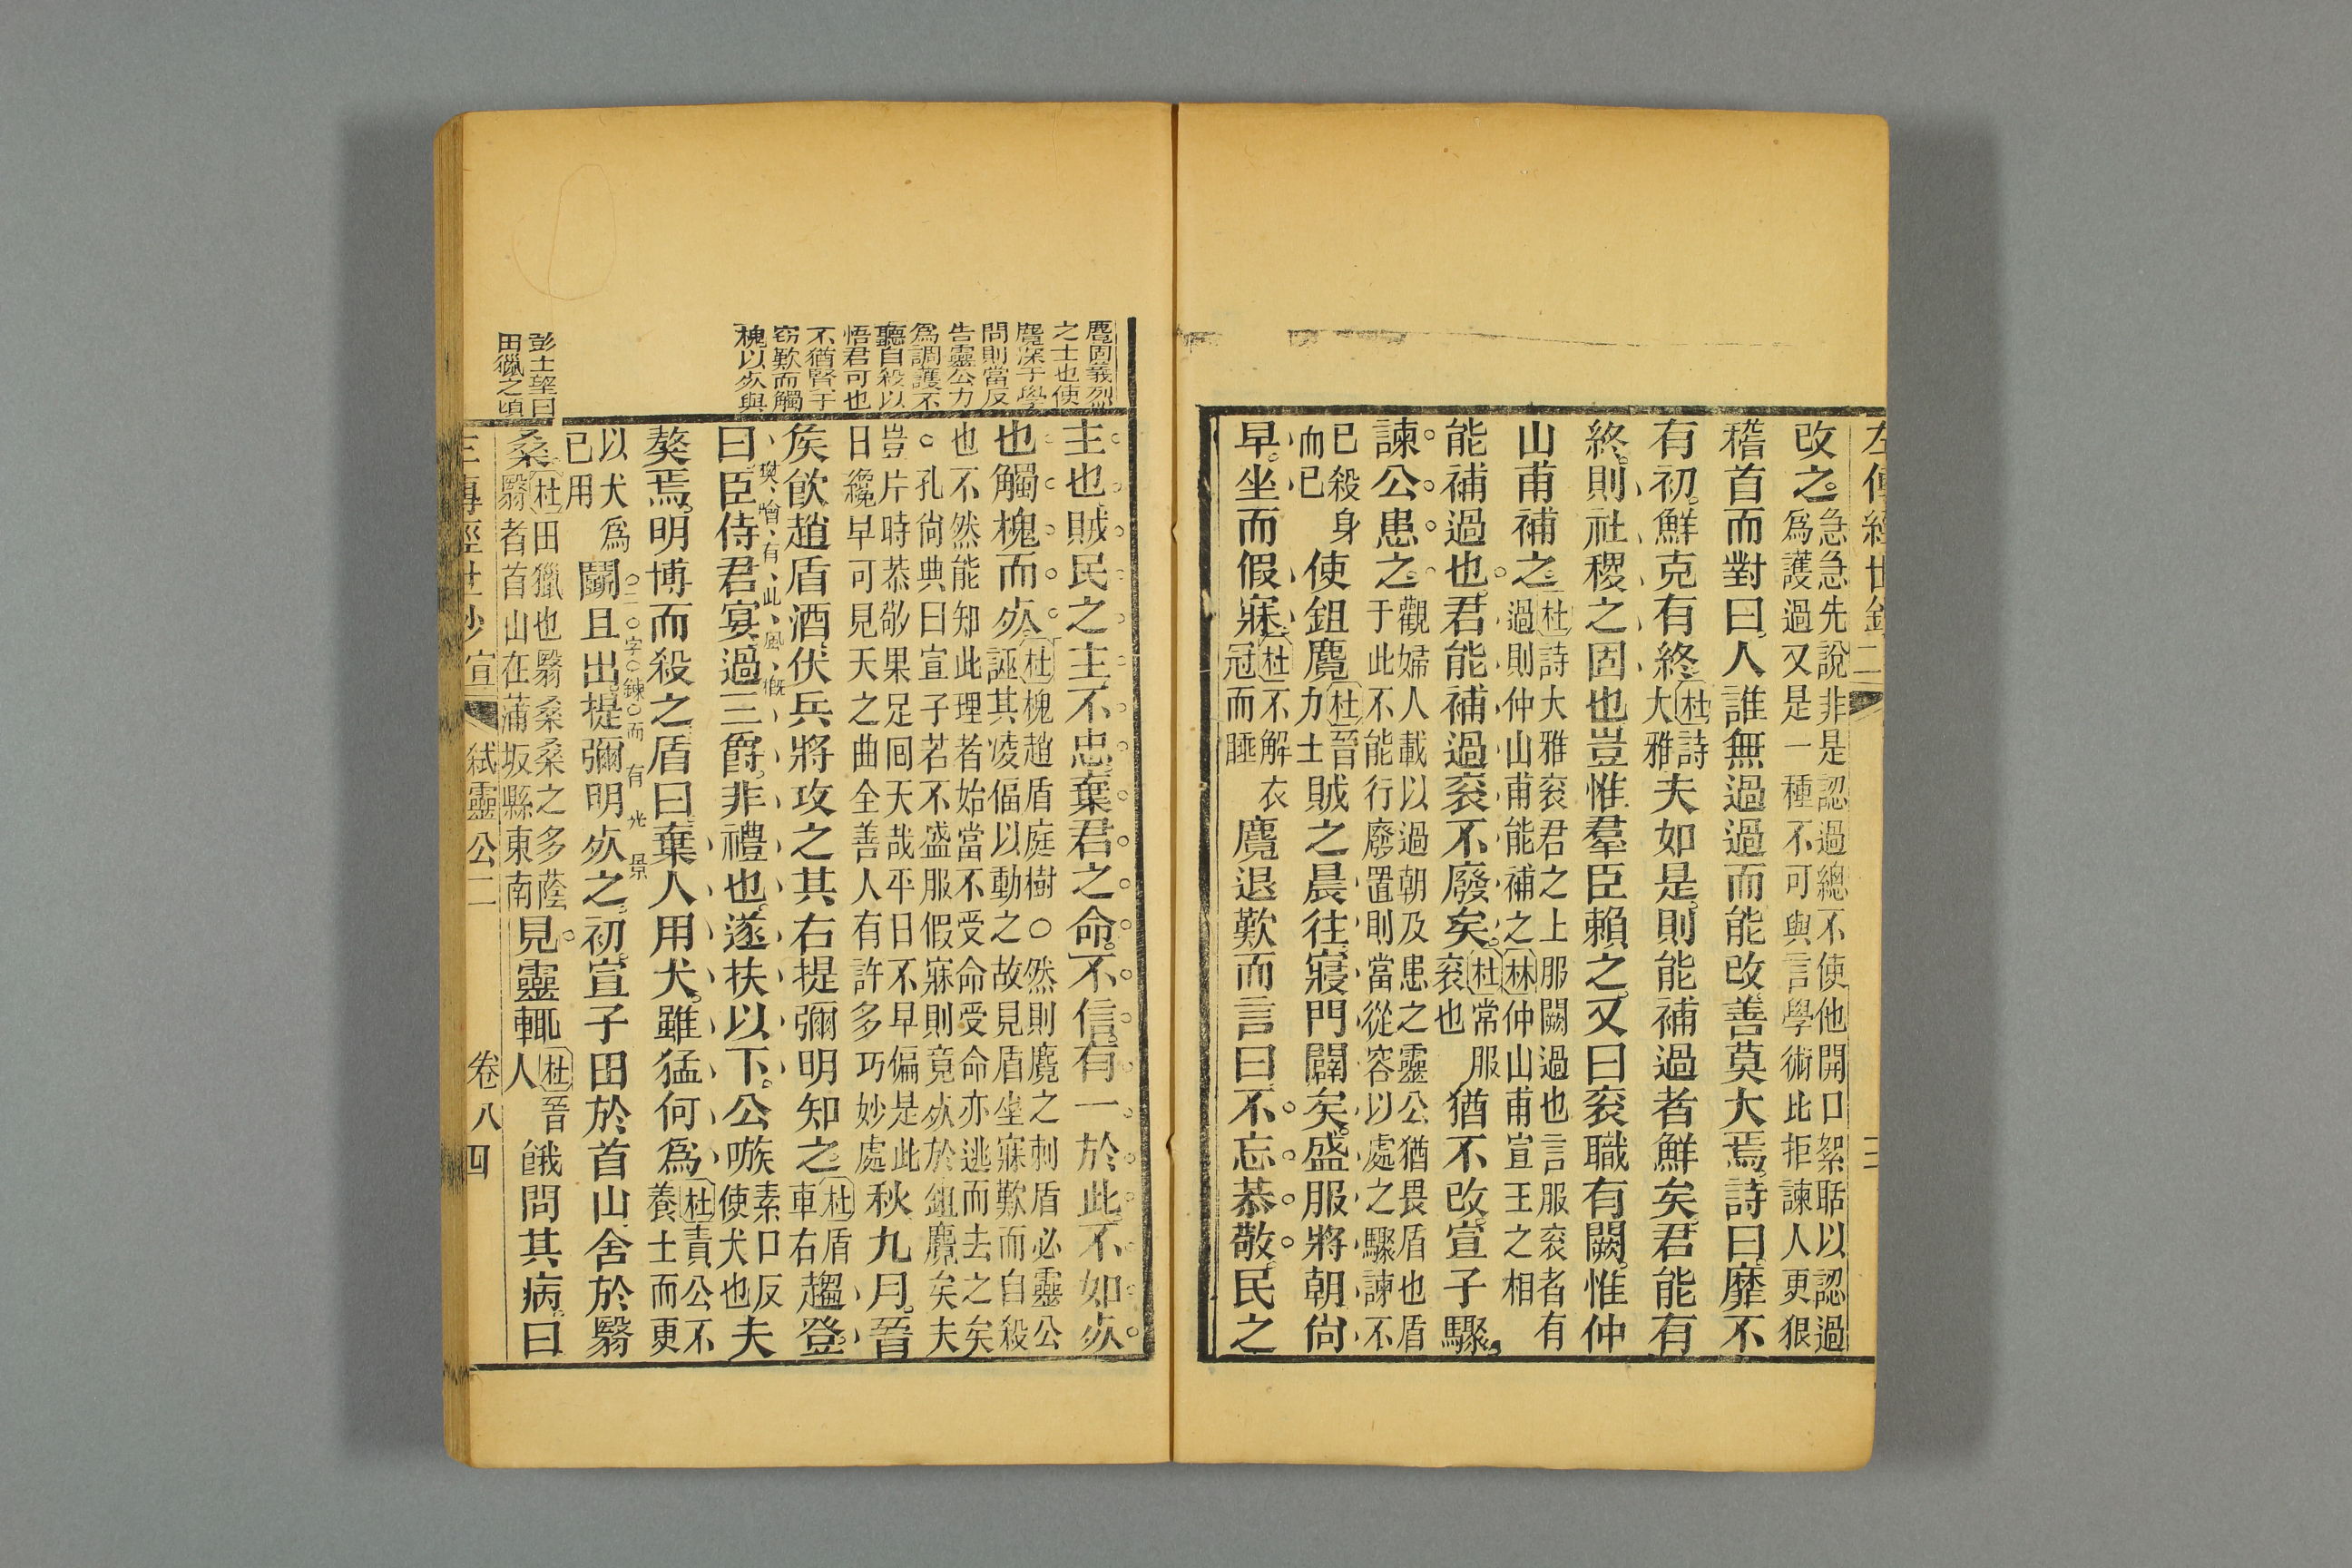 左傳經世鈔 二 三
改之急急先說非是認過總不使他開口絮聒以認過
爲護過又是一種不可與言學術比拒諫人更狠
稽首而對曰人誰無過過而能改善莫大焉詩曰靡不
有初鮮克有終杜詩大雅夫如是則能補過者鮮矣君能有
終則社稷之固也豈惟羣臣賴之又曰衮職有闕惟仲
山甫補之杜詩大雅衮君之上服闕過也言服衮者有
過則仲山甫能補之林仲山甫宣王之相
能補過也君能補過衮不廢矣杜常服衮也猶不改宣子驟
諫公患之觀婦人載以過朝及患之靈公猶畏盾也盾
于此不能行廢置則當從容以處之驟諫不
已殺身而已使鉏麑杜晉力士賊之晨往寢門闢矣盛服將朝尙
早坐而假寐杜不解衣冠而睡麑退歎而言曰不忘恭敬民之
麑固義烈
之士也使
麑深于學
問則當反
告靈公力
爲調護不
聽自殺以
悟君可也
不猶賢于
窃歎而觸
槐以死與
主也賊民之主不忠棄君之命不信有一於此不如死
也觸槐而死杜槐趙盾庭樹○然則麑之刺盾必靈公
誣其凌偪以動之故見盾坐寐歎而自殺
也不然能知此理者始當不受命受命亦逃而去之矣
○孔尙典曰宣子若不盛服假寐則竟死於鉏麑矣夫
豈片時恭敬果足囘天哉平日不早偏是此
日纔早可見天之曲全善人有許多巧妙處秋九月晉
矦飮趙盾酒伏兵將攻之其右提彌明知之杜盾車右趨登
曰臣侍君宴過三爵非禮也遂扶以下公嗾素口反使犬也夫
獒焉明博而殺之盾曰棄人用犬雖猛何爲杜責公不養士而更
以犬爲已用鬬且出提彌明死之初宣子田於首山舍於翳
二字鍊而有光景
彭士望曰
田獵之頃
桑杜田獵也翳桑桑之多蔭
翳者首山在蒲坂縣東南見靈輒杜晉人餓問其病曰
宣 弑靈公二 卷八 四